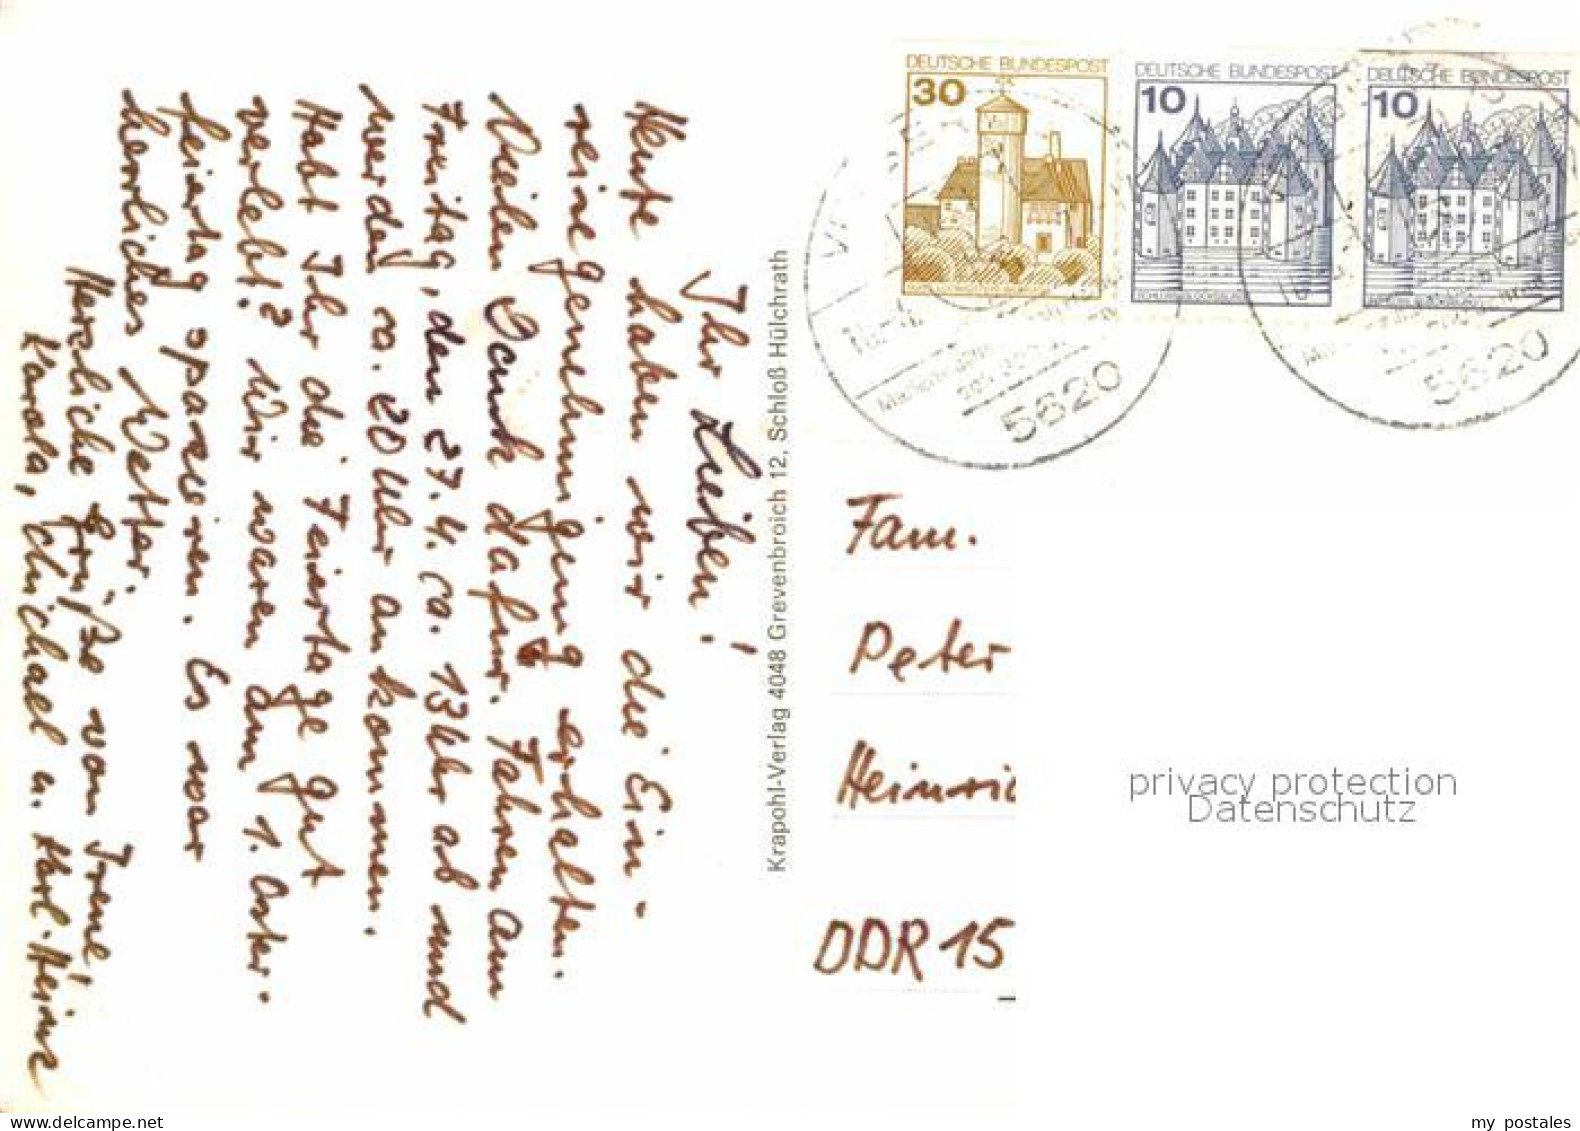 Ihr Lieben!
Heute haben wir die Ein-
reisegenehmigung erhalten.
Vielen Dank dafür. Fahren am
Freitag, den 27.4. ca. 13 Uhr ab und
werden ca. 20 Uhr ankommen.
Habt Ihr die Feiertage gut
verlebt? Wir waren am 1. Oster-
feiertag spazieren. Es war
herrliches Wetter.
Herzliche Grüße von Irene,
Karola, Michael u. Karl-Heinz
Krapohl-Verlag 4048 Grevenbroich 12, Schloß Hülchrath
DEUTSCHE BUNDESPOST
30
DEUTSCHE BUNDESPOST
10
DEUTSCHE BUNDESPOST
10
5620
5620
Fam.
Peter
Heinric
DDR 15
privacy protection
Datenschutz
my postales